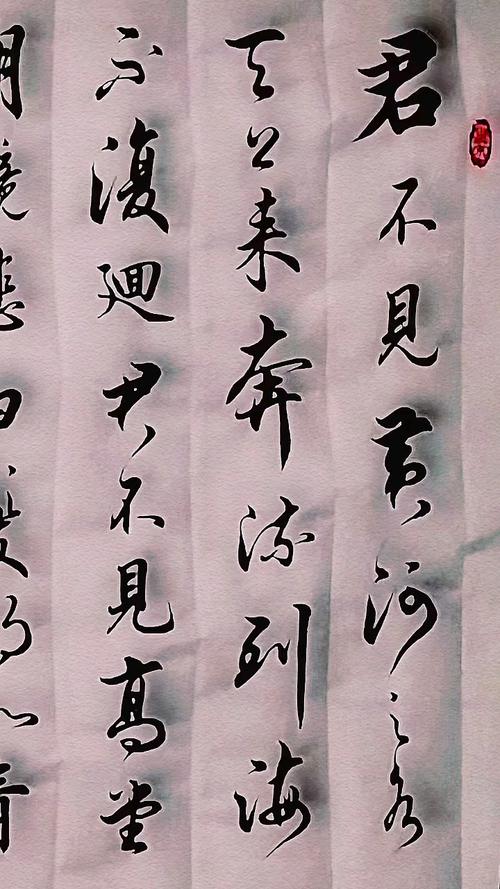 君不見黄河之水
天上来奔流到海
不復迴君不見高堂
明鏡悲白髮朝如青